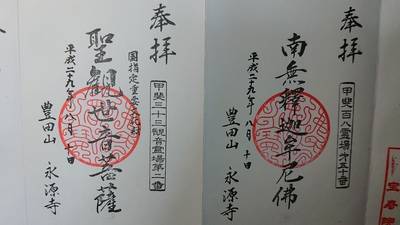 奉拝
甲斐百八霊場第五十番
南無釋迦牟尼佛
平成二十九年八月十日
豊田山
永源寺
奉拝
甲斐三十三観音霊場第二番
国指定重要文化財
聖観世音菩薩
平成二十九年八月十日
豊田山
永源寺